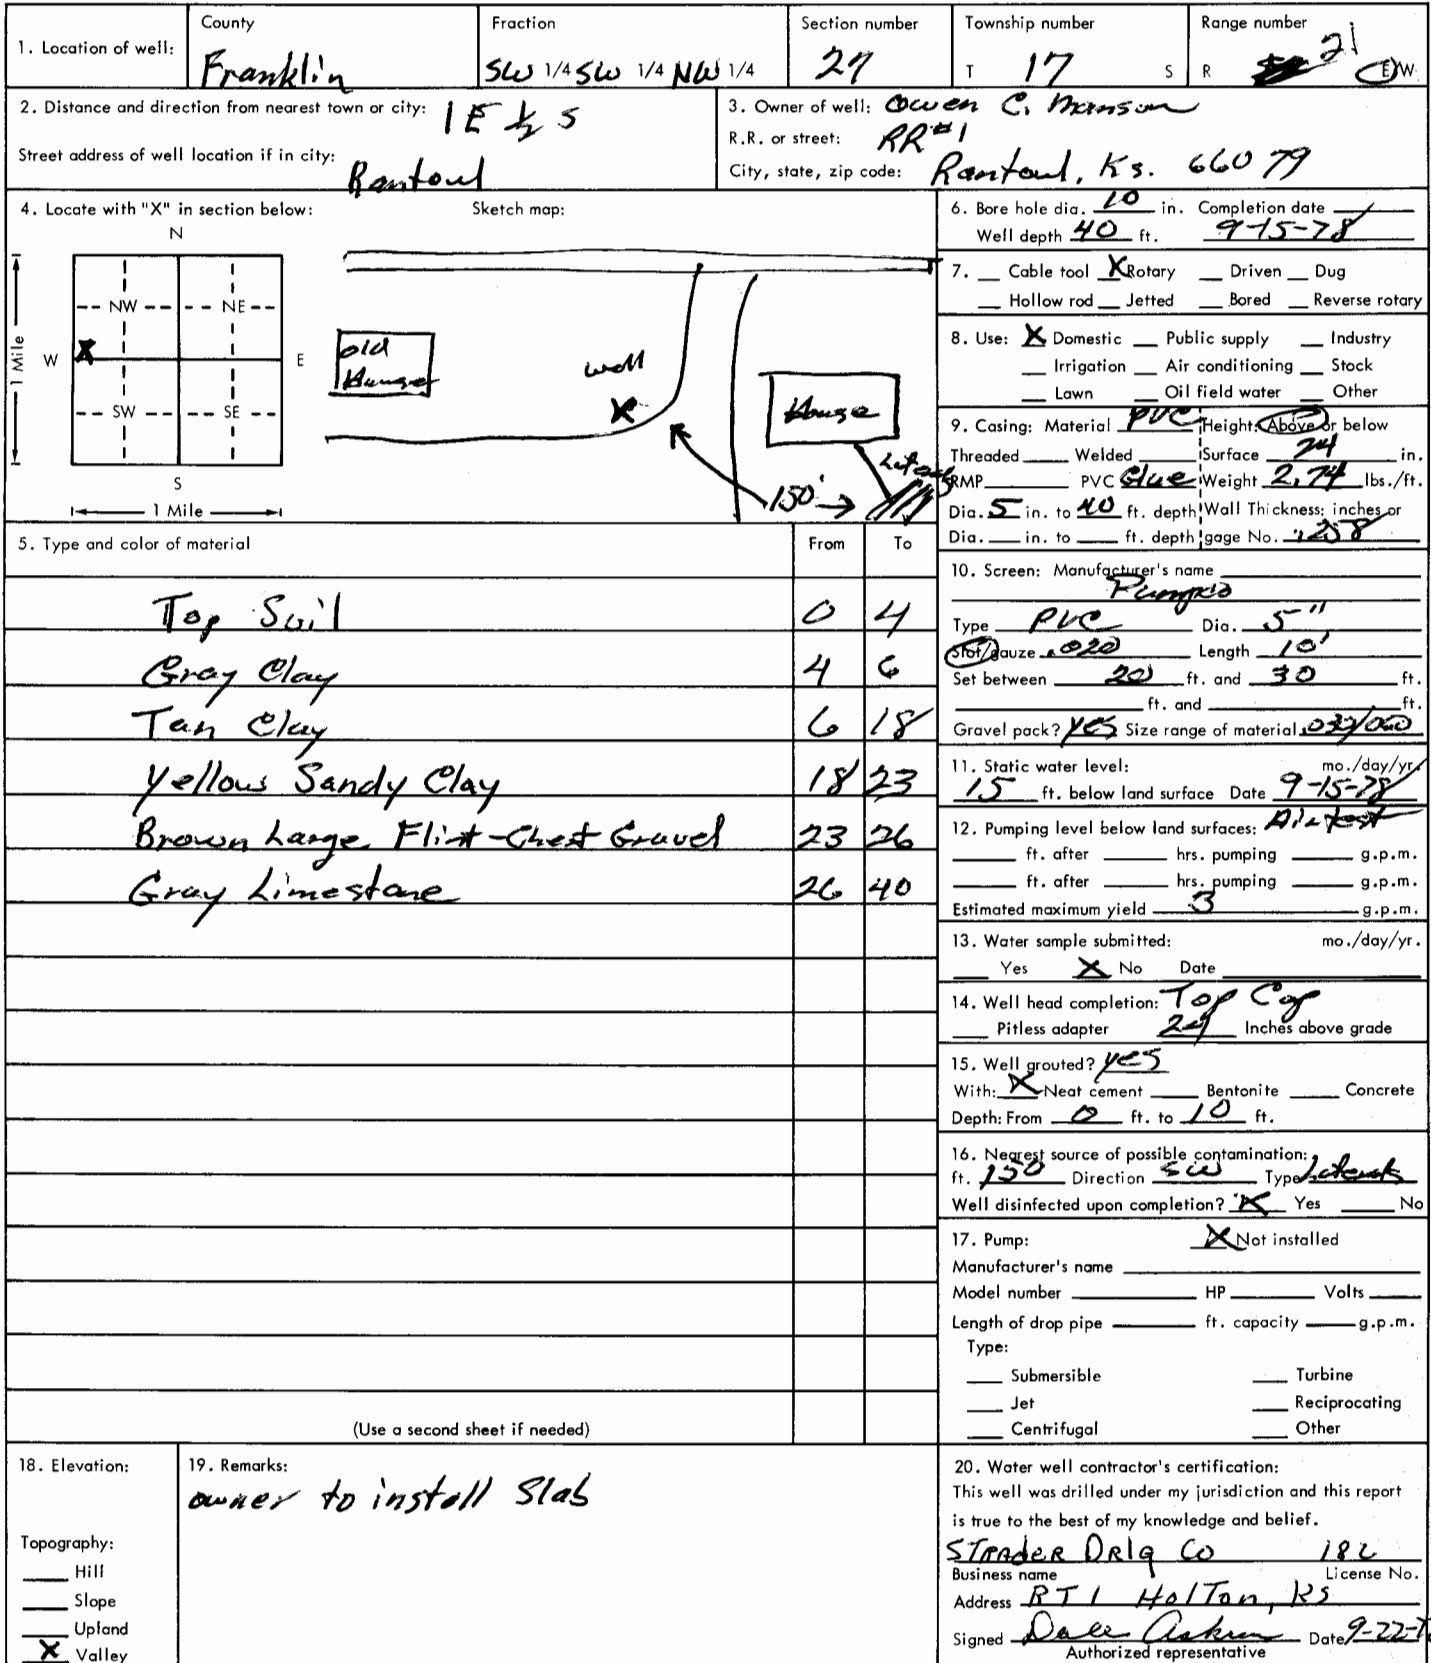 1. Location of well: County Franklin Fraction SW 1/4 SW 1/4 NW 1/4 Section number 27 Township number T 17 S Range number R 21 E/W
2. Distance and direction from nearest town or city: 1 E ½ S
Street address of well location if in city: Rantoul
3. Owner of well: Owen C. Manson
R.R. or street: RR#1
City, state, zip code: Rantoul, Ks. 66079
4. Locate with "X" in section below: Sketch map:
N
NW NE
W X E
SW SE
S
1 Mile
1 Mile
old
well
X
House
150'
5. Type and color of material From To
Top Soil 0 4
Gray Clay 4 6
Tan Clay 6 18
Yellow Sandy Clay 18 23
Brown Large Flint-Chert Gravel 23 26
Gray Limestone 26 40
(Use a second sheet if needed)
6. Bore hole dia. 10 in. Completion date
Well depth 40 ft. 9-15-78
7. Cable tool X Rotary Driven Dug
Hollow rod Jetted Bored Reverse rotary
8. Use: X Domestic Public supply Industry
Irrigation Air conditioning Stock
Lawn Oil field water Other
9. Casing: Material PVC Height: Above or below
Threaded Welded Surface 24 in.
RMP PVC Glue Weight 2.74 lbs./ft.
Dia. 5 in. to 40 ft. depth Wall Thickness: inches or
Dia. in. to ft. depth gage No. .258
10. Screen: Manufacturer's name
Type PVC Dia. 5"
Slot/gauze .020 Length 10'
Set between 20 ft. and 30 ft.
ft. and ft.
Gravel pack? yes Size range of material
11. Static water level: mo./day/yr.
15 ft. below land surface Date 9-15-78
12. Pumping level below land surfaces: Air test
ft. after hrs. pumping g.p.m.
ft. after hrs. pumping g.p.m.
Estimated maximum yield 3 g.p.m.
13. Water sample submitted: mo./day/yr.
Yes X No Date
14. Well head completion: Top Cap
Pitless adapter 24 Inches above grade
15. Well grouted? yes
With: X Neat cement Bentonite Concrete
Depth: From 0 ft. to 10 ft.
16. Nearest source of possible contamination:
ft. 150 Direction SW Type Laterals
Well disinfected upon completion? X Yes No
17. Pump: X Not installed
Manufacturer's name
Model number HP Volts
Length of drop pipe ft. capacity g.p.m.
Type:
Submersible Turbine
Jet Reciprocating
Centrifugal Other
18. Elevation:
Topography:
Hill
Slope
Upland
X Valley
19. Remarks:
owner to install Slab
20. Water well contractor's certification:
This well was drilled under my jurisdiction and this report
is true to the best of my knowledge and belief.
STRADER DRlg Co 182
Business name License No.
Address RT 1 Holton, KS
Signed Dale Date 9-22-
Authorized representative